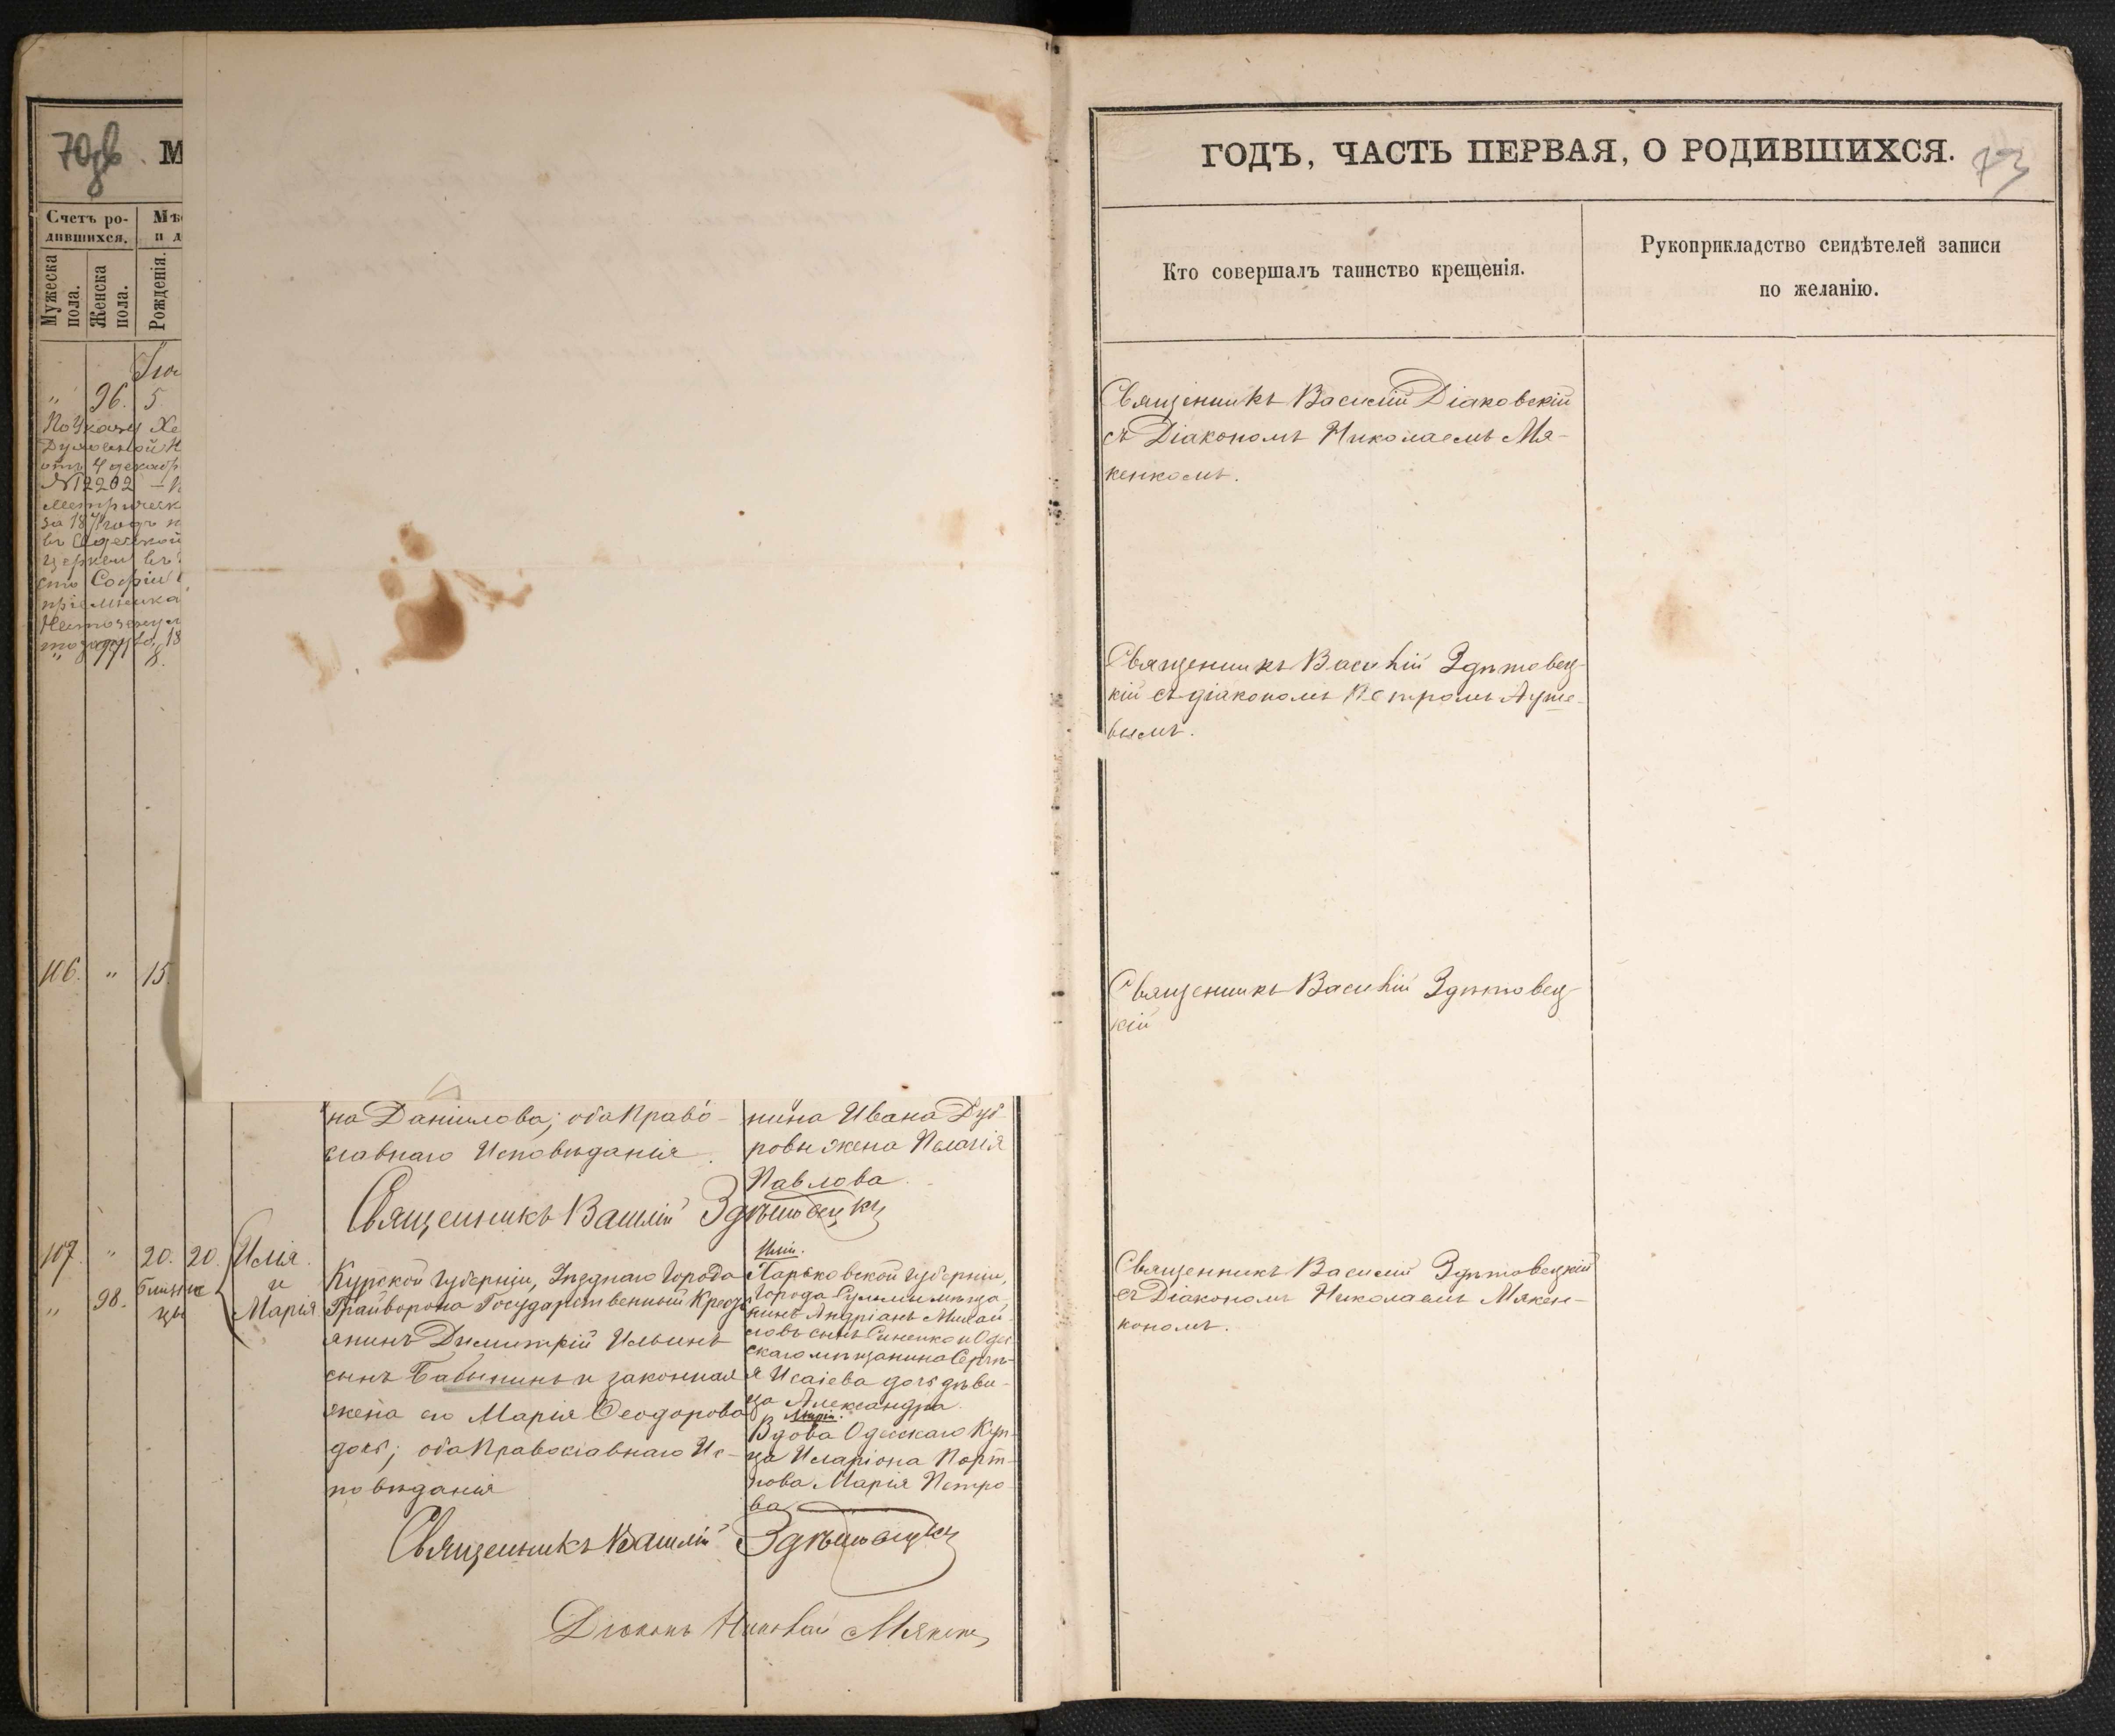 70зв М
Счетъ ро-
дившихся.
Мѣс
и д
Мужеска
пола.
Женска
пола.
Рожденія.
" 96. 5
По Указу Хе
Духовной
отъ 4 декабр
№ 12202
метрическ
за 187 годъ
въ Одесской
церкви въ
Софіи
" 97 8.
116. " 15.
на Данилова; оба Право-
славнаго Исповѣданія.
нина Ивана Дуб-
ровы жена Пелагія
Павлова.
Священникъ Василій Здѣтовецкі
107. " 20. 20. Илія
и
" 98. близне
цы
Марія
Курской губерніи, Уѣзднаго города
Грайворона Государственный Кресть
янинъ Димитрій Ильинъ
сынъ Бабынинъ и законная
жена его Марія Ѳеодорова
дочь; оба Православнаго Ис-
повѣданія
Иліи.
Харьковской губерніи,
города Суммы мѣща-
нинъ Андріанъ Михай-
ловъ сынъ Синенко и Одес
скаго мѣщанина Сергѣ-
я Исаіева дочь дѣви-
ца Александра.
Маріи.
Вдова Одесскаго Куп-
ца Иларіона Порт-
нова Марія Петро-
ва
Священникъ Василій Здѣтовецкі
Діаконъ Николай Мякен
ГОДЪ, ЧАСТЬ ПЕРВАЯ, О РОДИВШИХСЯ.
73
Кто совершалъ таинство крещенія.
Рукоприкладство свидѣтелей записи
по желанію.
Священникъ Василій Діаковскій
съ Діакономъ Николаемъ Мя-
кенкомъ.
Священникъ Василій Здѣтовец-
кій съ діакономъ Петромъ
вымъ.
Священникъ Василій Здѣтовец-
кій
Священникъ Василій Здѣтовецкій
съ Діакономъ Николаемъ Мякен-
кономъ.